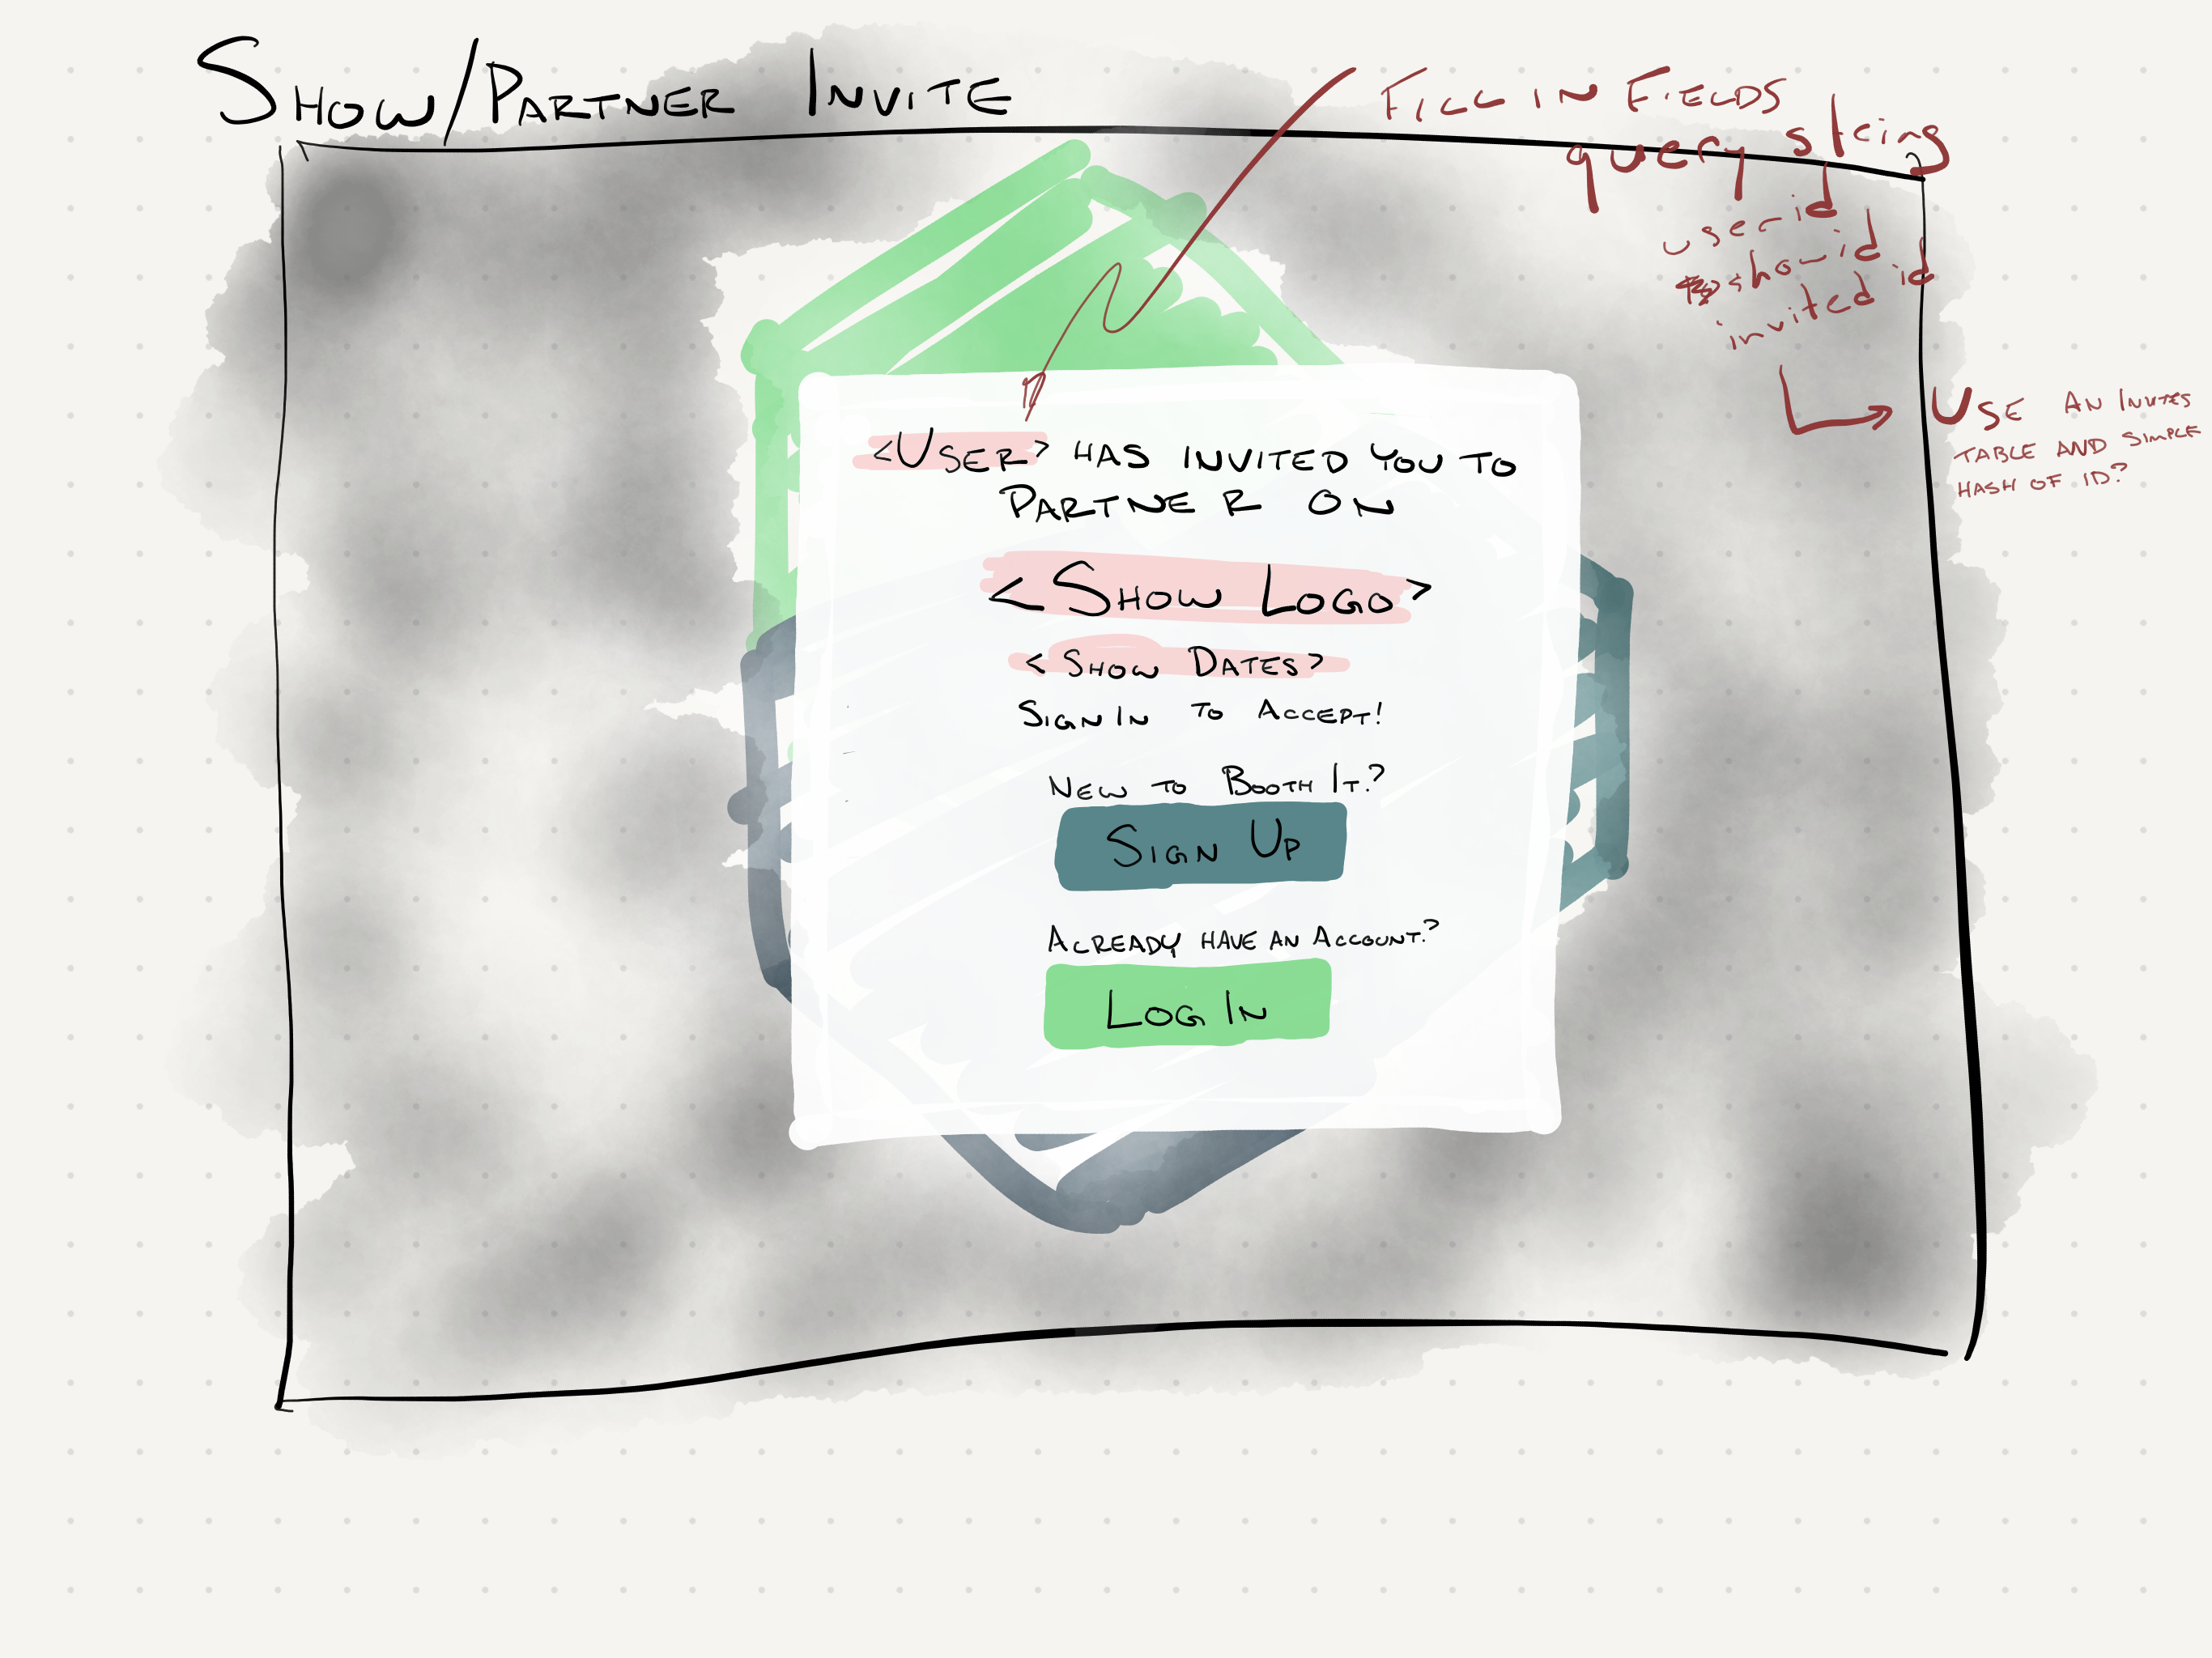 SHOW/PARTNER INVITE
FILL IN FIELDS
query string
user id
show id
invited id
USE AN INVITES
TABLE AND SIMPLE
HASH OF ID?
<USER> HAS INVITED YOU TO
PARTNER ON
<SHOW LOGO>
<SHOW DATES>
SIGN IN TO ACCEPT!
NEW TO BOOTH IT?
SIGN UP
ALREADY HAVE AN ACCOUNT?
LOG IN